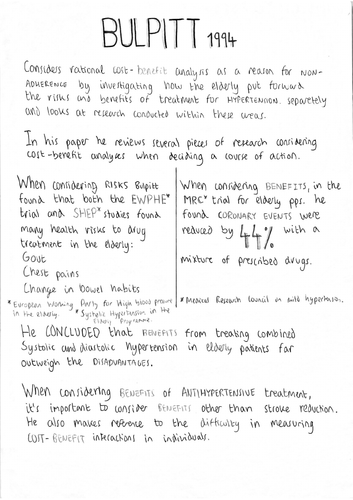 BULPITT 1994
Considers rational cost-benefit analysis as a reason for NON-
ADHERENCE by investigating how the elderly put forward
the risks and benefits of treatment for HYPERTENSION separately
and looks at research conducted within these areas.
In his paper he reviews several pieces of research considering
cost-benefit analyses when deciding a course of action.
When considering RISKS Bulpitt
found that both the EWPHE*
trial and SHEP* studies found
many health risks to drug
treatment in the elderly:
Gout
Chest pains
Change in bowel habits
*European Working Party for High blood pressure
in the elderly. *Systolic Hypertension in the
Elderly Programme.
When considering BENEFITS, in the
MRC* trial for elderly pps. he
found CORONARY EVENTS were
reduced by 44% with a
mixture of prescribed drugs.
*Medical Research Council on mild hypertension.
He CONCLUDED that BENEFITS from treating combined
Systolic and diastolic hypertension in elderly patients far
outweigh the DISADVANTAGES.
When considering BENEFITS of ANTIHYPERTENSIVE treatment,
it's important to consider BENEFITS other than stroke reduction.
He also makes reference to the difficulty in measuring
COST-BENEFIT interactions in individuals.